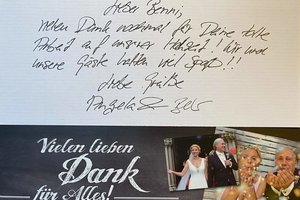 Lieber Benni,
vielen Dank nochmal für Deine tolle
Arbeit auf unserer Hochzeit! Wir und
unsere Gäste hatten viel Spaß!!
Liebe Grüße
Angela &
Vielen lieben
Dank
für Alles!